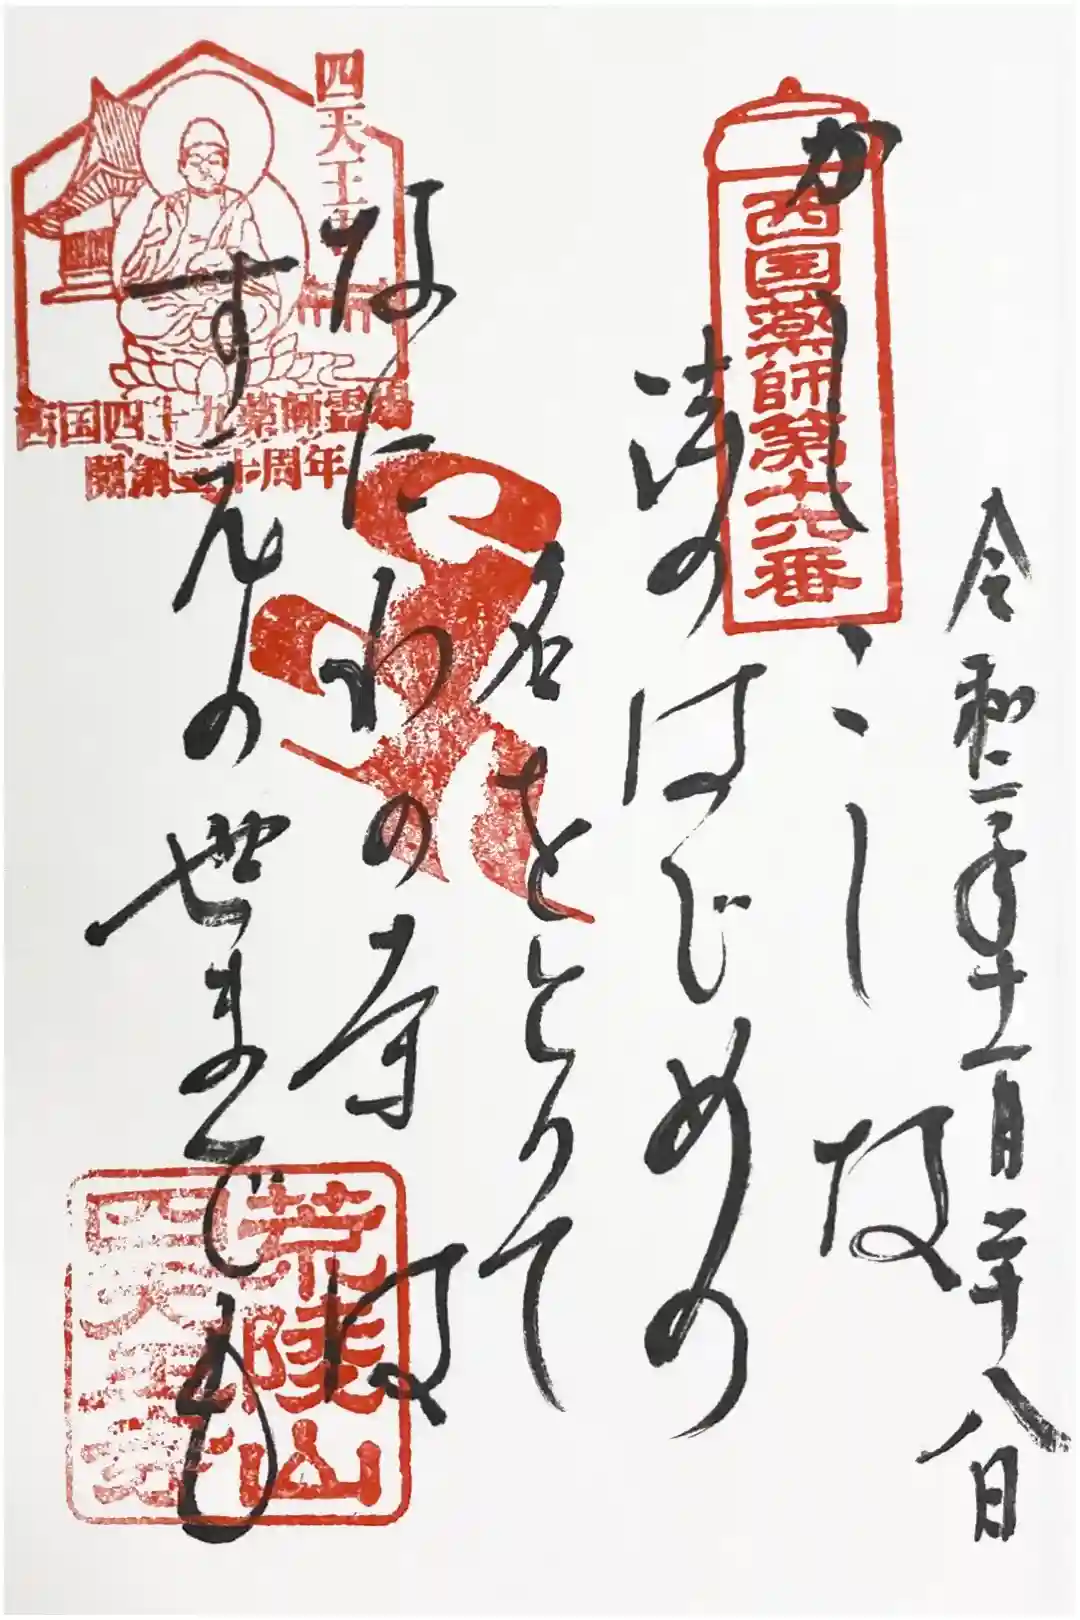 令和三年十一月二十八日
西国薬師第十六番
かしこしな
法のはじめの
名をとりて
なにわの寺は
すえの世までも
四天王寺
西国四十九薬師霊場
開創三十周年
荒陵山
四天王寺